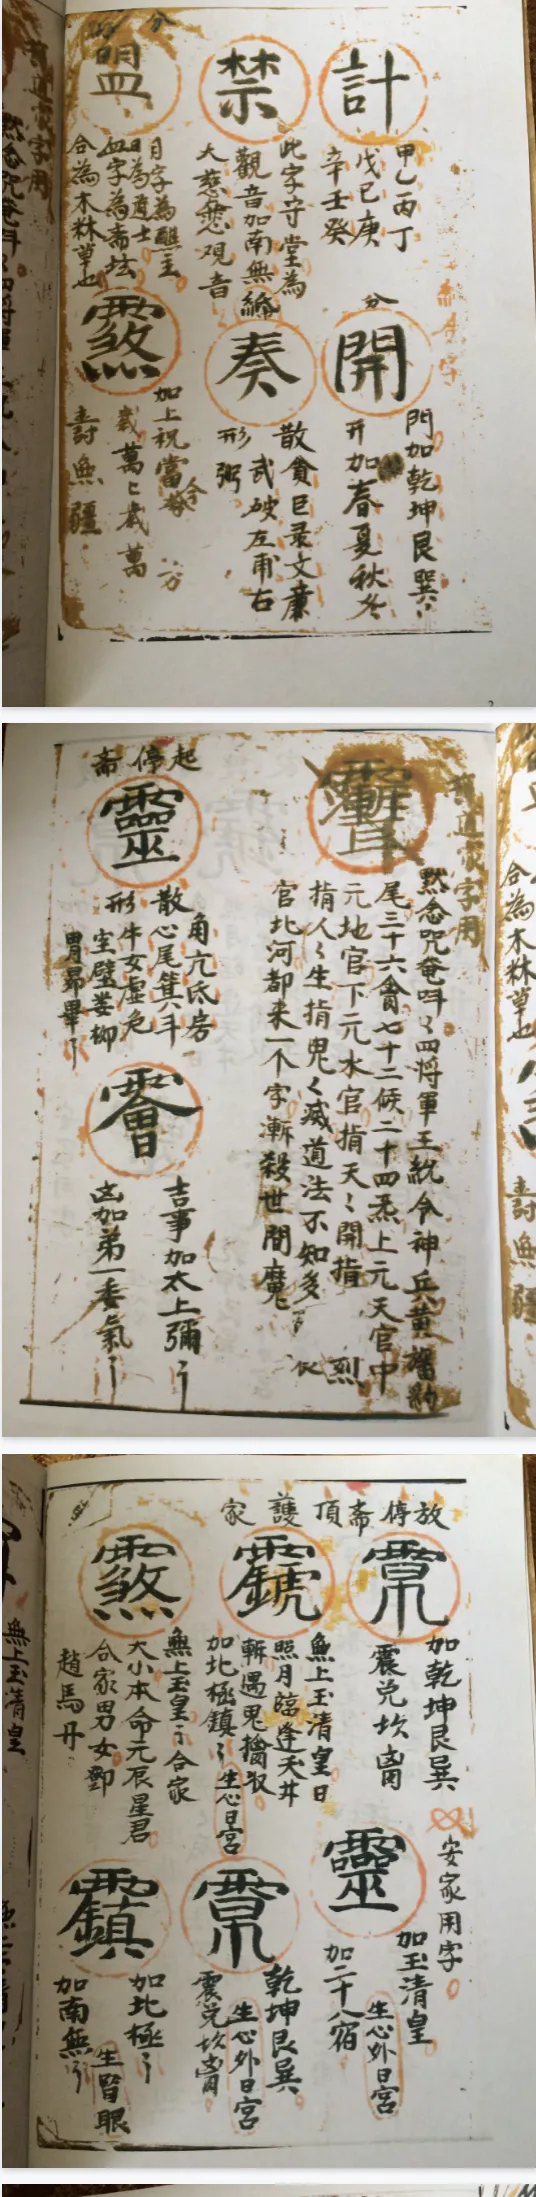 計
甲乙丙丁
戊己庚
辛壬癸
禁
此字守堂為
觀音加南無
大慈悲观音
盟
月字為醮主
日為道士
血字為斋坛
合為木林草也
分
開
門加乾坤艮巽
开加春夏秋冬
奏
散貪巨录文廉
武破左甫右
形
加上祝當
歲萬上歲萬
壽無疆
2
有道家字用
默念咒奄吽〻四将軍王統令神兵黃旛豹
尾三十六禽七十二候二十四炁上元天官中
元地官下元水官指天〻開指
指人〻生指鬼〻滅道法不知多
官北河都来一个字漸殺世間魔
起停斋
靈
角亢氐房
散心尾箕斗
形牛女虚危
室壁娄柳
胃昴畢
吉事加太上彌
凶加弟一委氣
合為木林草也
壽無疆
放停斋頂護家
加乾坤艮巽
震兑坎离
無上玉清皇日
照月臨逢天丼
斬遇鬼擒收
加北極鎮
生心日宮
無上玉皇 合家
大小本命元辰星君
合家男女鄧
趙馬丹
安家用字
靈
加玉清皇
生心外日宮
加二十八宿
乾坤艮巽
生心外日宮
震兑坎离
加北極
生眉眼
加南無
無上玉清皇